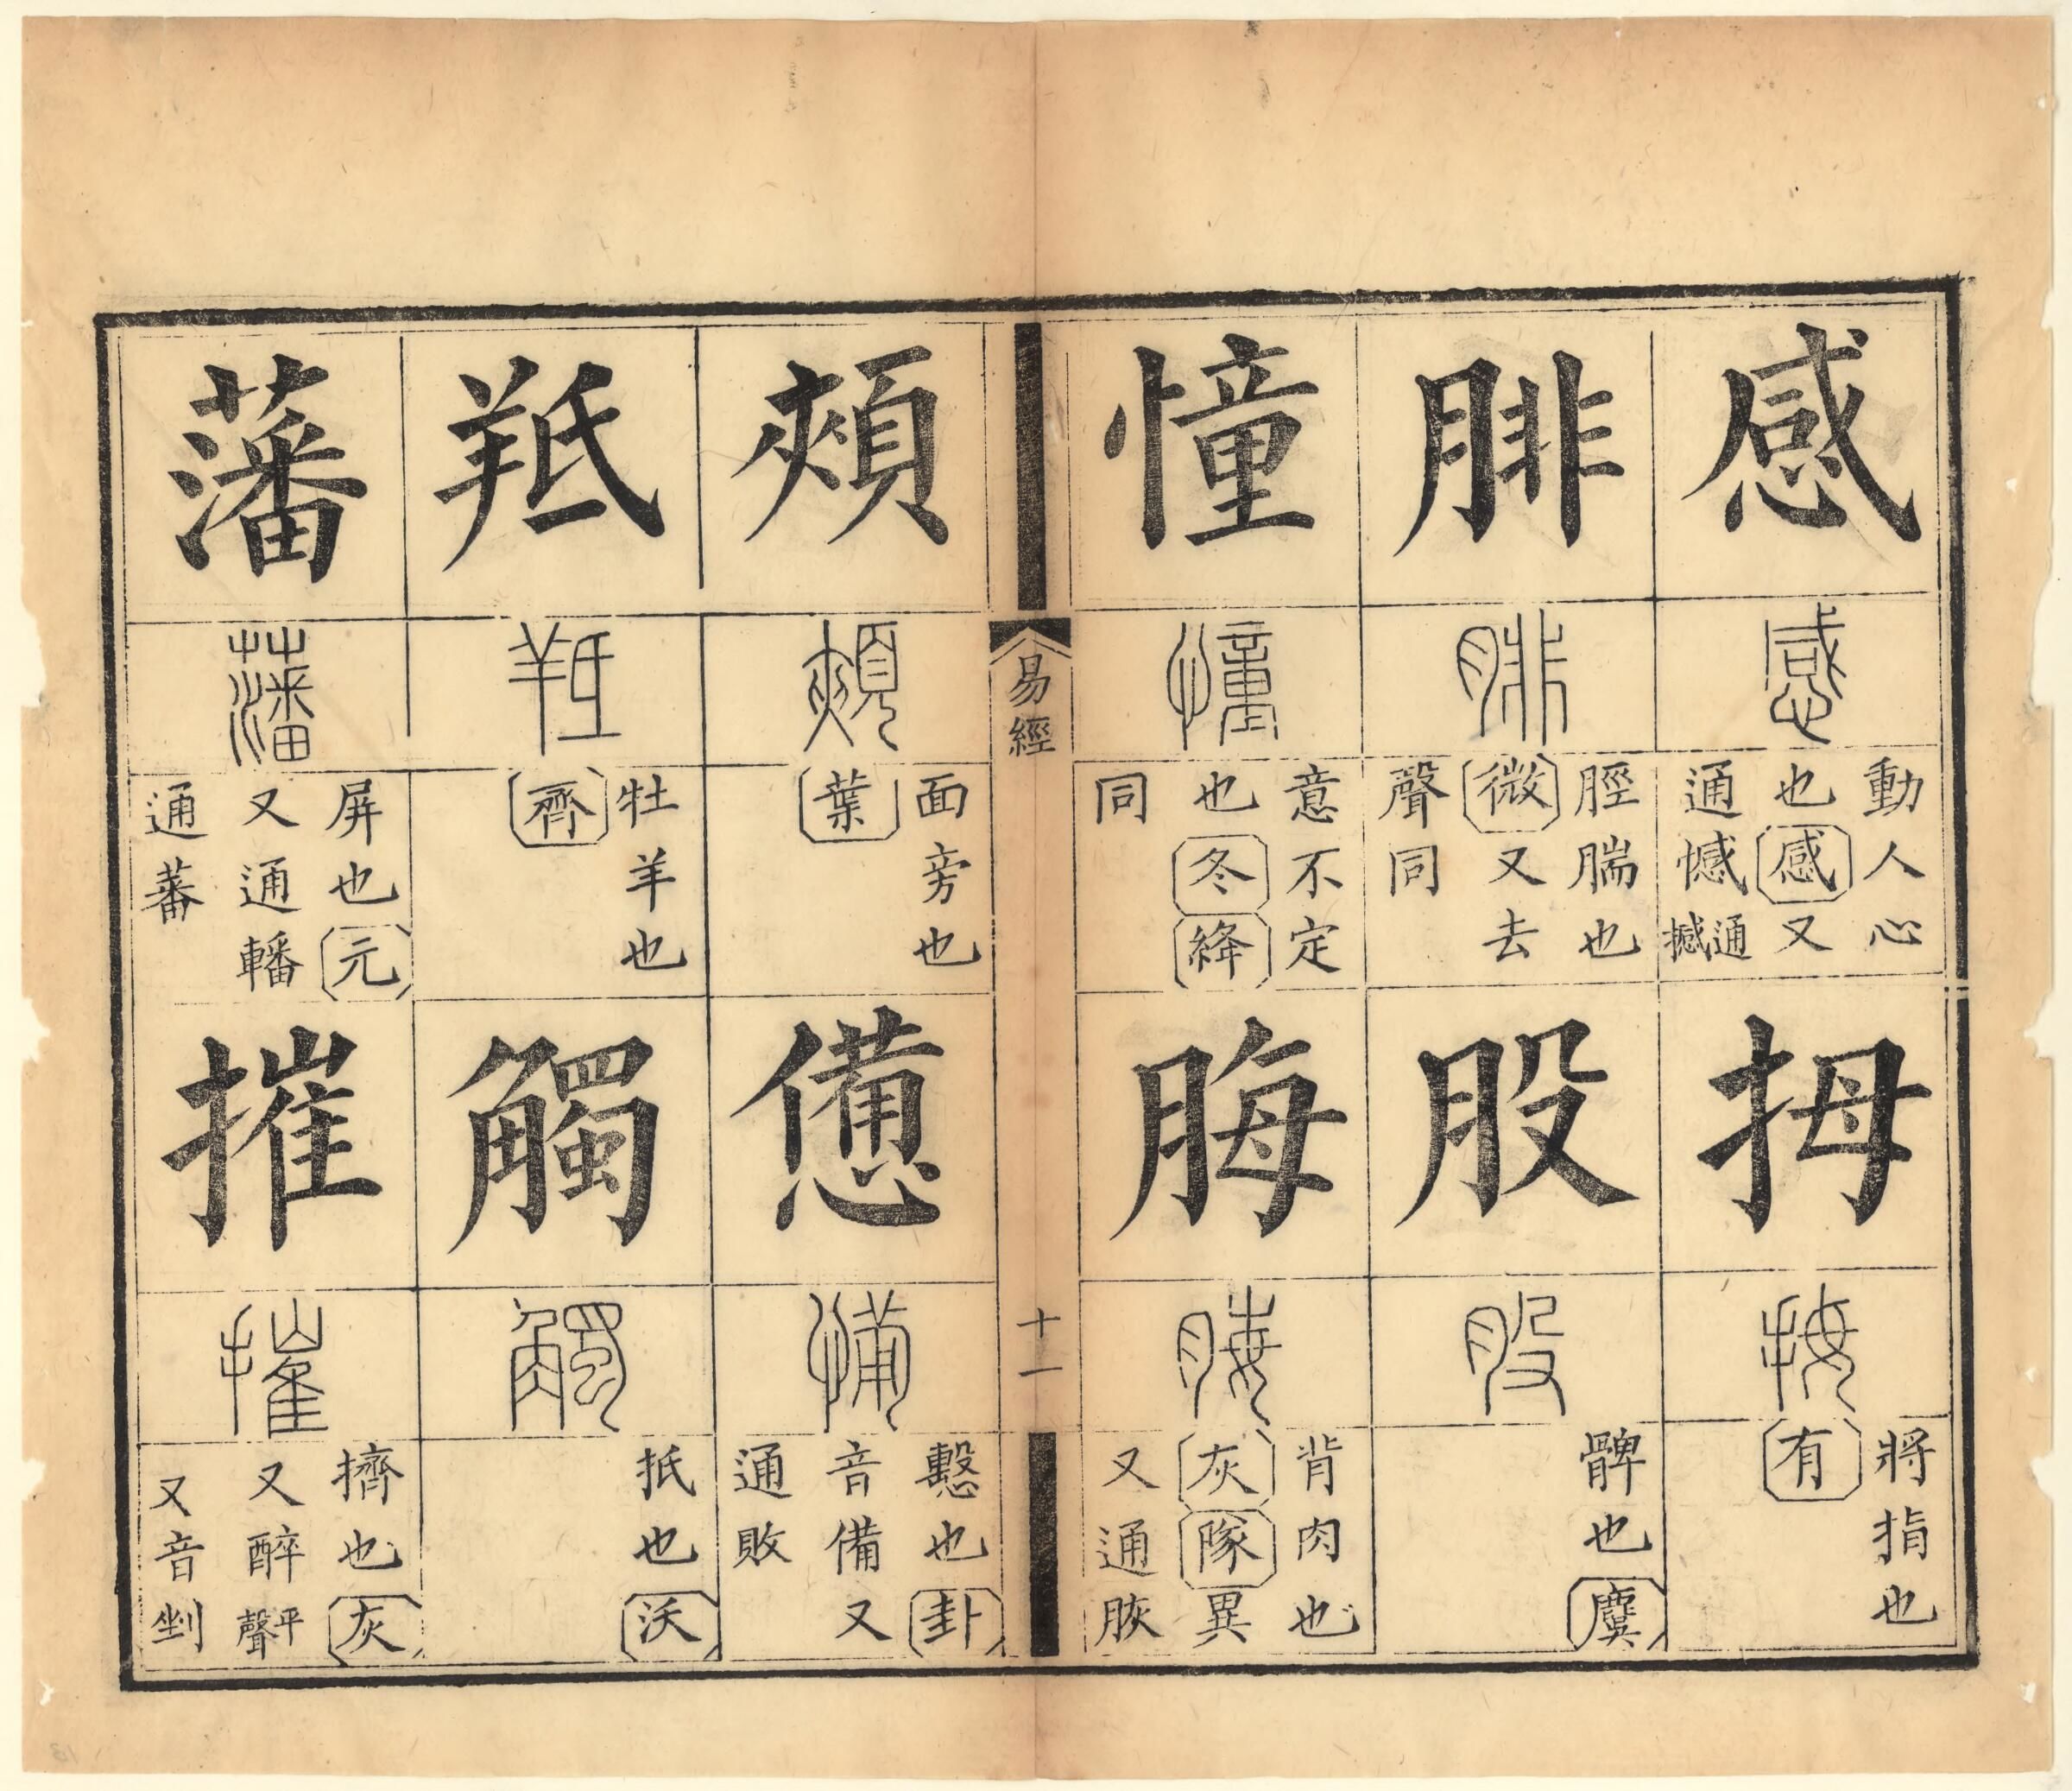 感
感
動人心
也感又
通憾通撼
拇
拇
將指也
有
腓
腓
脛腨也
微又去
聲同
股
股
髀也麌
憧
憧
意不定
也冬絳
同
脢
脢
背肉也
灰隊異
又通脄
易經
十一
頰
頰
面旁也
葉
憊
憊
憊也卦
音備又
通敗
羝
羝
牡羊也
齊
觸
觸
抵也沃
藩
藩
屏也元
又通轓
通蕃
摧
摧
擠也灰
又醉平聲
又音剉